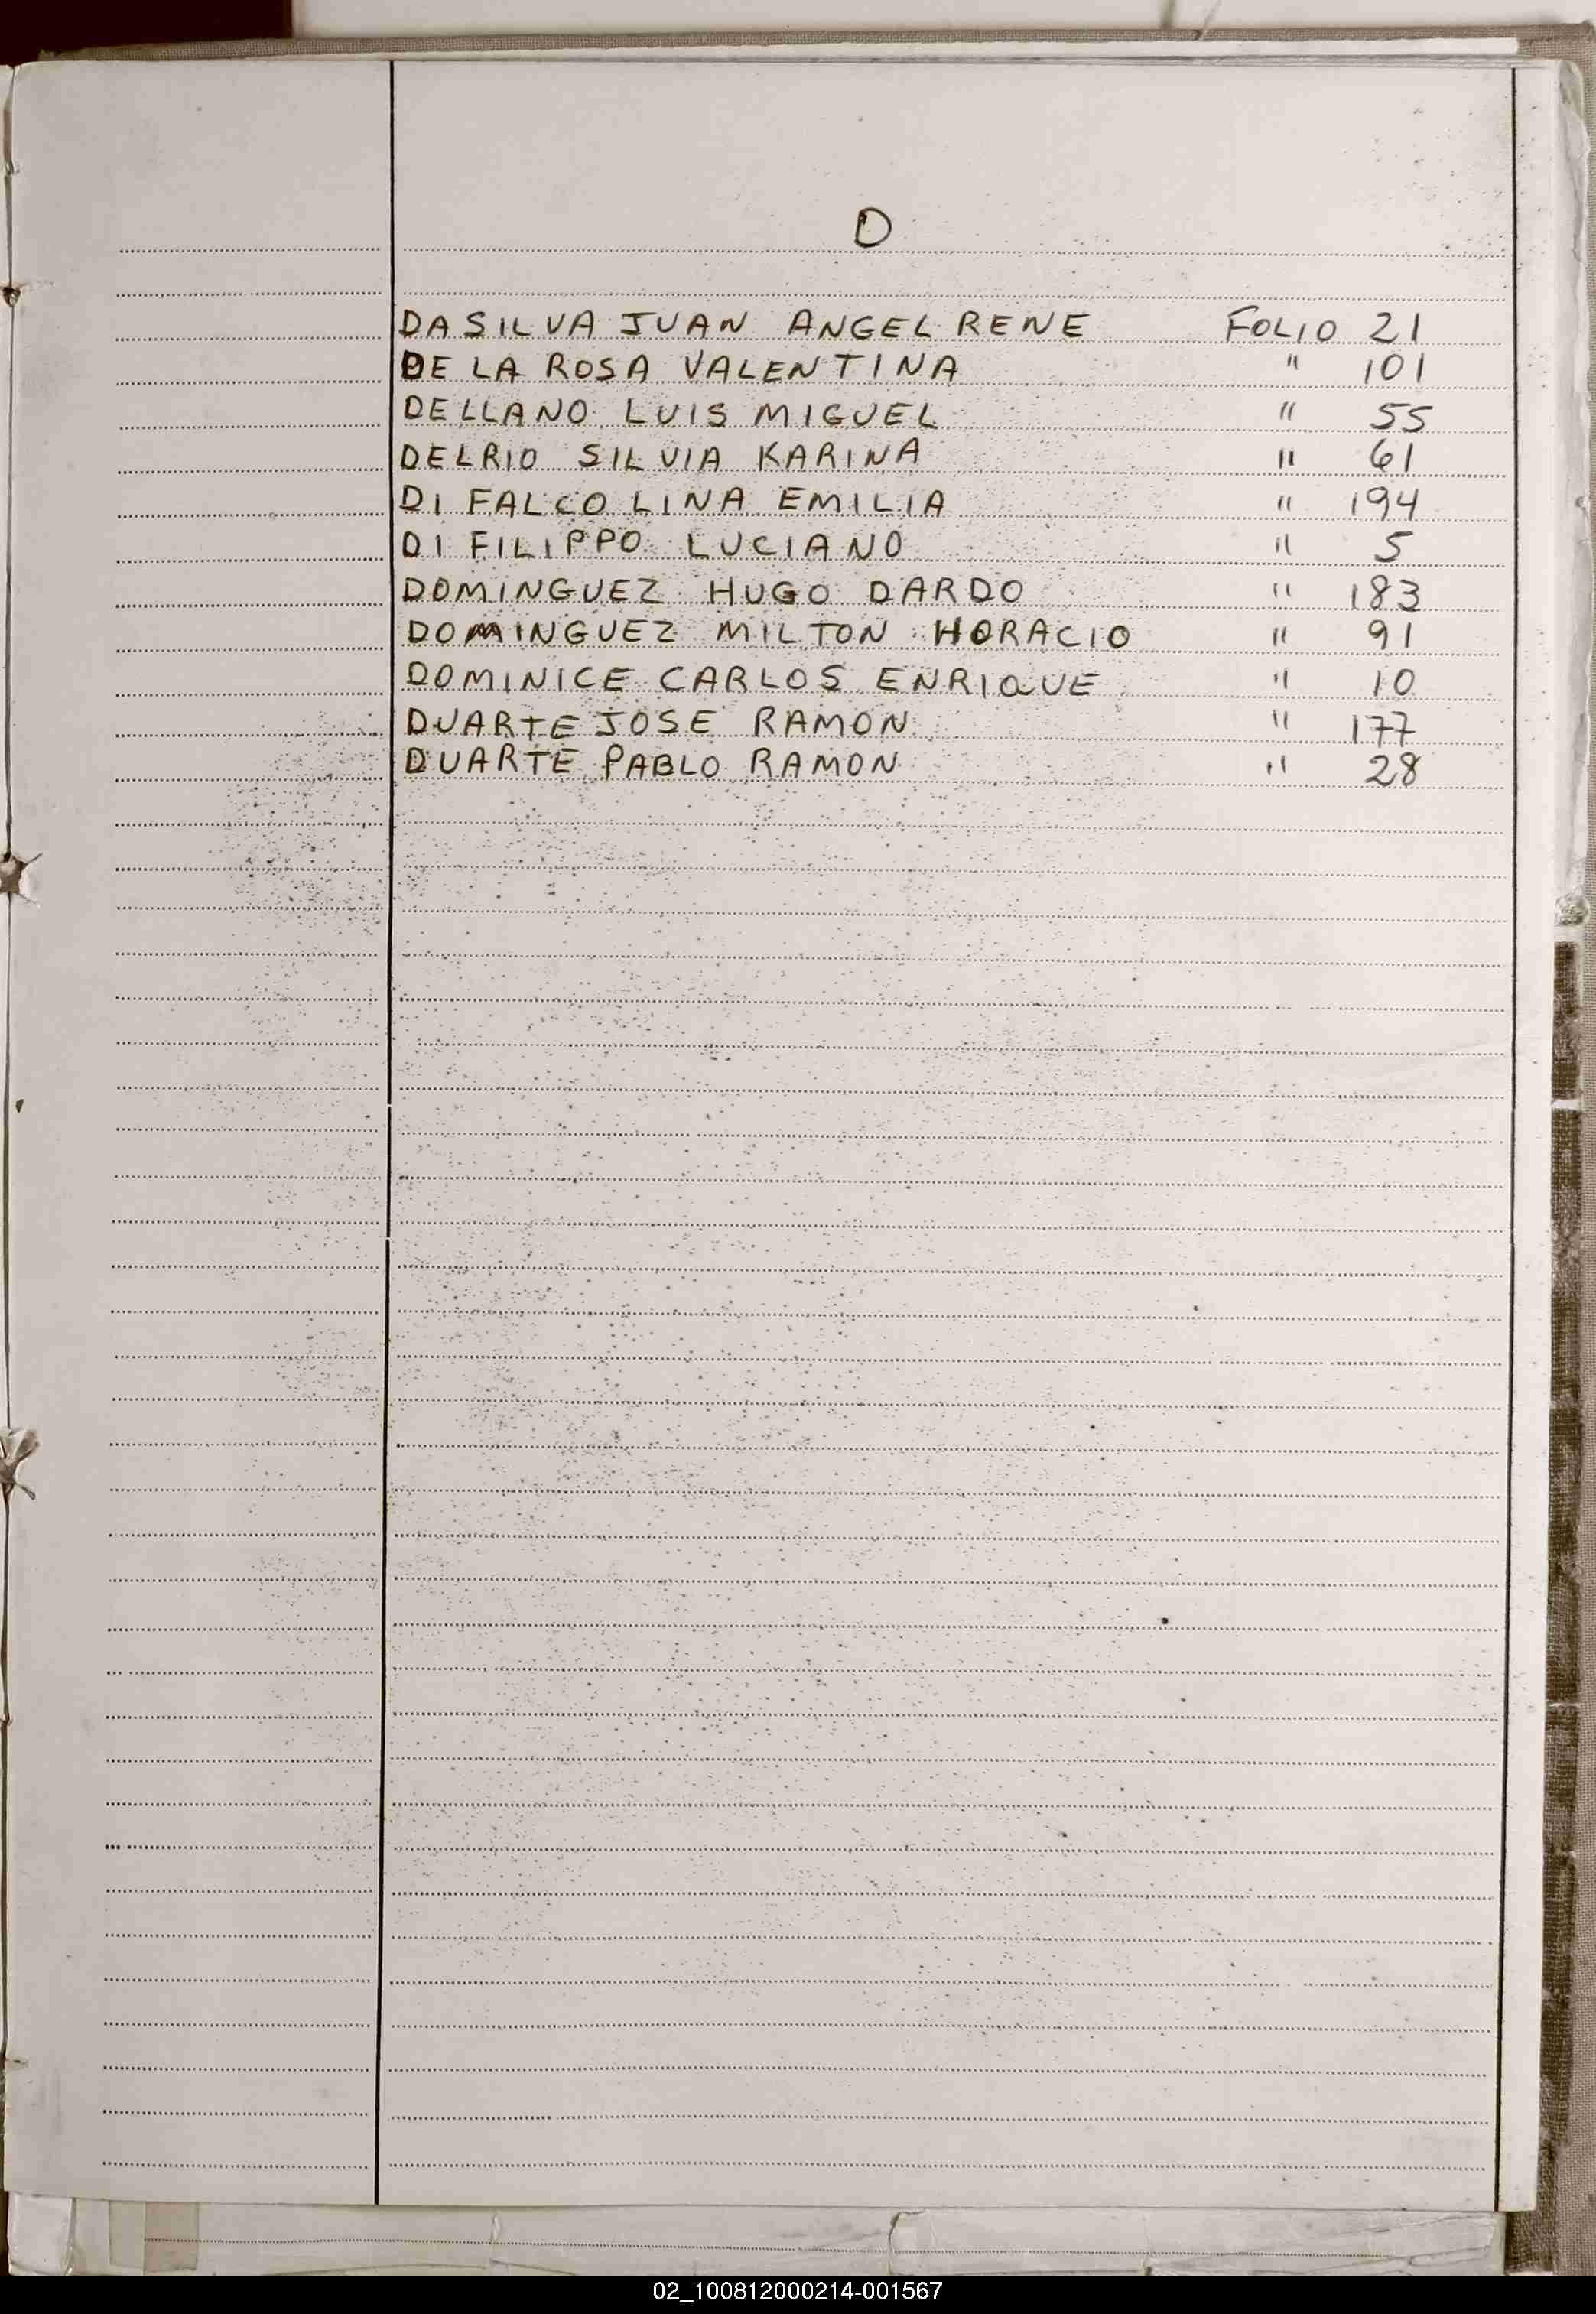 D
DASILVA JUAN ANGEL RENE FOLIO 21
DE LA ROSA VALENTINA " 101
DELLANO LUIS MIGUEL " 55
DELRIO SILVIA KARINA " 61
DI FALCO LINA EMILIA " 194
DI FILIPPO LUCIANO " 5
DOMINGUEZ HUGO DARDO " 183
DOMINGUEZ MILTON HORACIO " 91
DOMINICE CARLOS ENRIQUE " 10
DUARTE JOSE RAMON " 177
DUARTE PABLO RAMON " 28
02_100812000214-001567